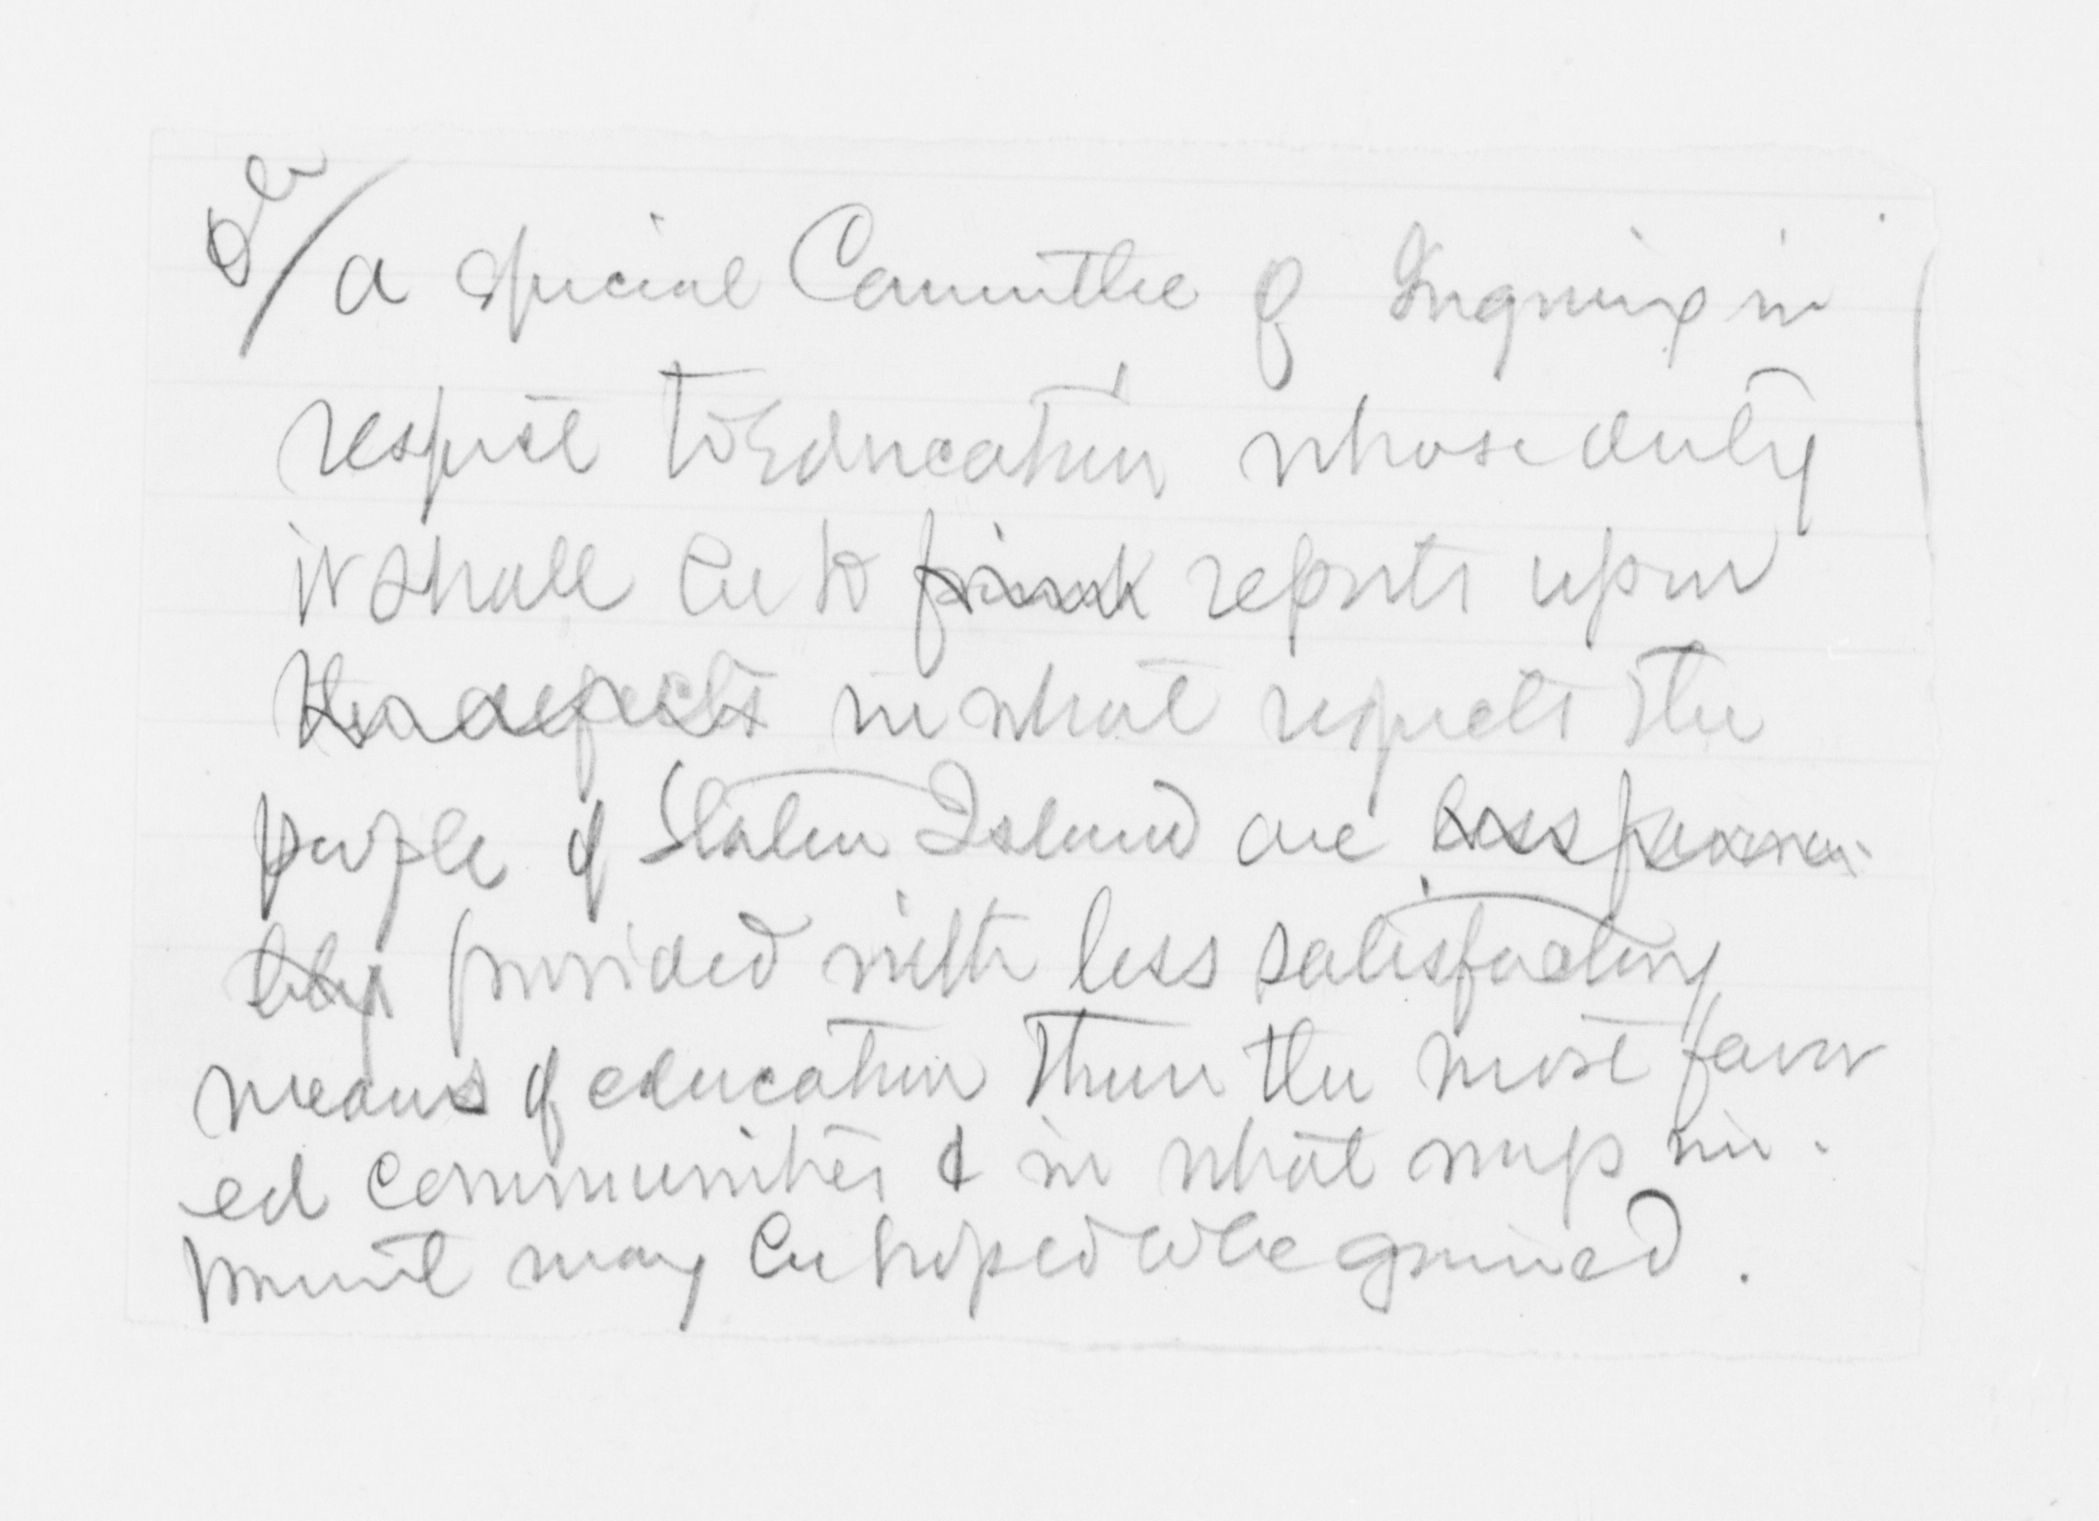 a special Committee of Inquiry in
respect to Education whose duty
it shall be to reports upon
the defects in what respects the
people of Staten Island are less favora-
bly provided with less satisfactory
means of education than the most favor
ed communities & in what ways im-
provement may be hoped to be gained.